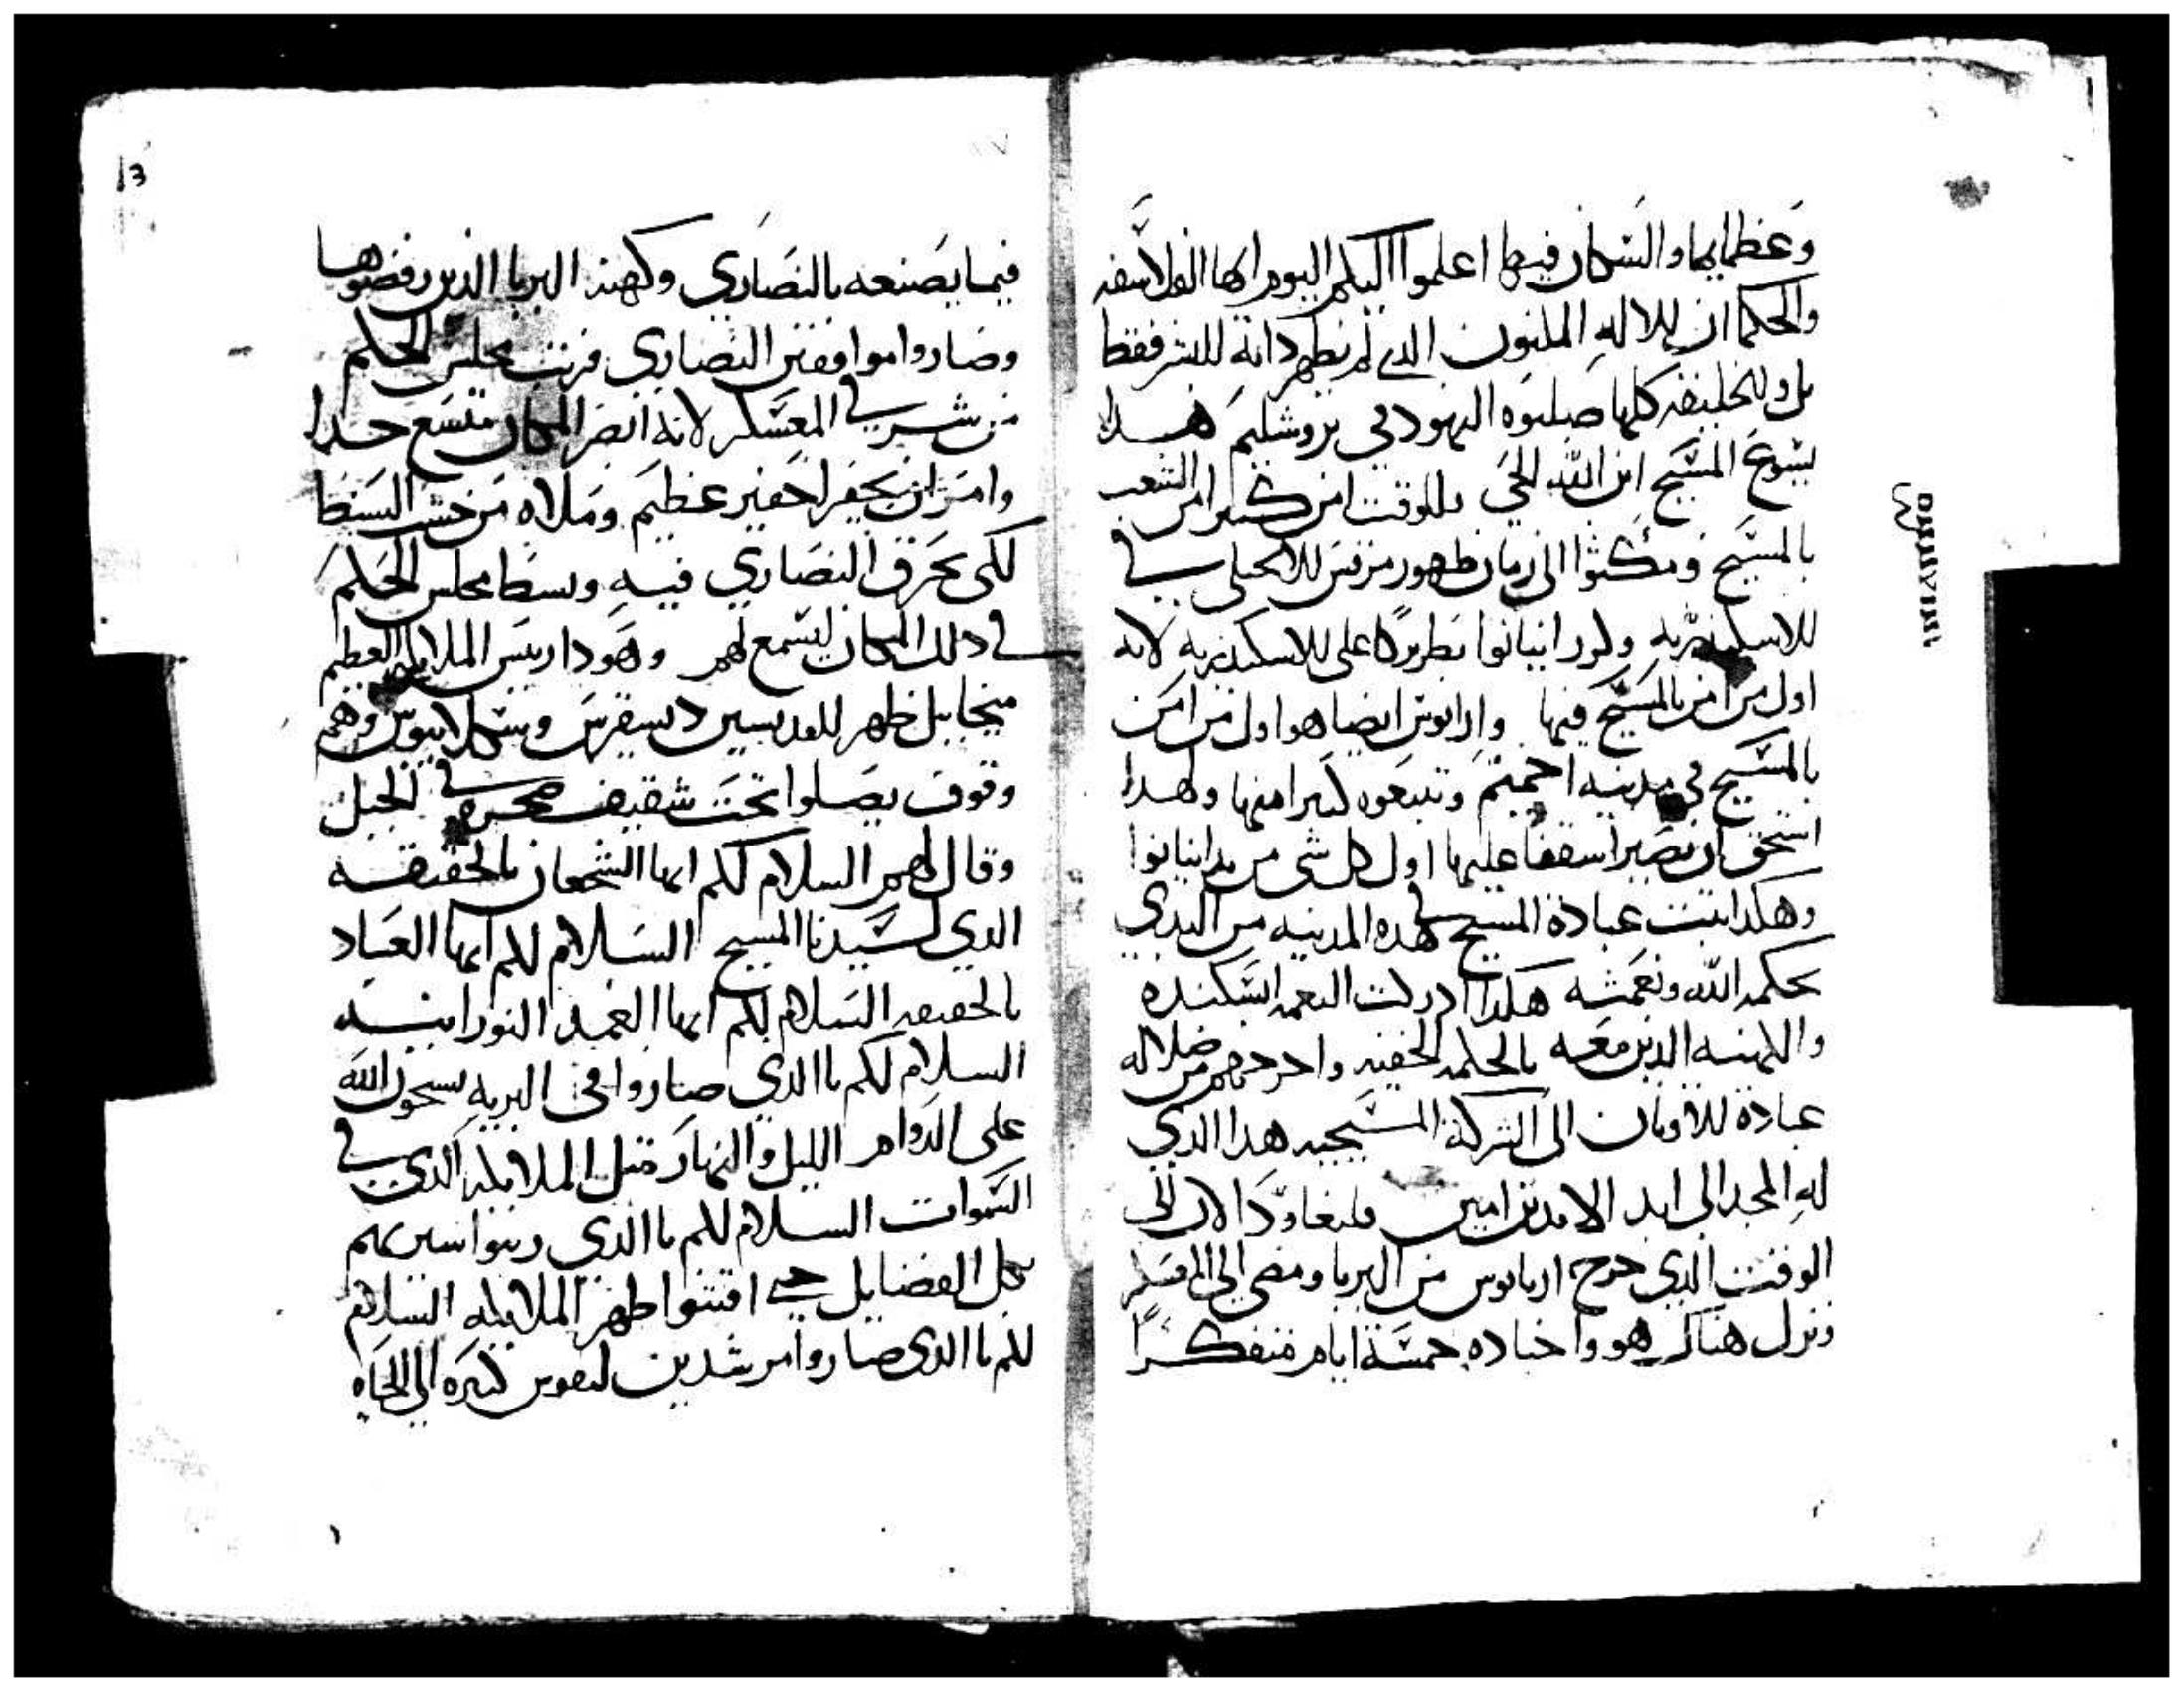 وعظمايها والسكان فيها اعلموا اليكم اليوم ايها الفلاسفه
والحكما ان للاله المليون الدي لم يظهر داته للبشر فقط
بل وللخليقه كلها صلبوه اليهود في يروشليم هدا
يسوع المسيح ابن الله الحي وللوقت امن كثيرا من الشعب
بالمسيح ومكثوا الى زمان ظهور مرقس للانجيلي في
للاسكندريه وكرز انيانوا بطريركا على للاسكندريه لانه
اول من امن بالمسيح فيها واريانوس ايضا هوا اول من امن
بالمسيح في مدينه احميم وتبعوه كثيرا منها ولهدا
استحق ان يصير اسقفا عليها اول كل شي من يد انيانوا
وهكدا ثبتت عباده المسيح في هده المدينه من البدي
بحكمه الله ونعمته هكدا ادركت النعمه السكندره
والكهنه الدين معه بالحكمه الخفيه واخرجهم من ضلاله
عباده للاوتان الى الشركه المسيحيه هدا الدي
له المجد الى ابد الابدين امين فلنعاود الان الى
الوقت الدي خرج اريانوس من البربا ومضى الى المعسكر
ونزل هناك هو واجناده خمسة ايام متفكرا
13
فيما يصنعه بالنصاري وكهنه البربا الدين رفضوها
وصاروا موافقين النصاري فرتب مجلس الحكم
من شرقي المعسكر لانه ابصر المكان متسع جدا
وامر ان يحفر احفير عظيم وملاه من خشب السنط
لكي يحرق النصاري فيه وبسط مجلس الحكم
في دلك المكان ليسمع لهم وهودا ريس الملايكه العظيم
ميخاييل ظهر للقديسين ديسقرس وسكلابيوس وهم
وقوف يصلوا تحت شقيف صخره في الجبل
وقال لهم السلام لكم ايها الشجعان بالحقيقه
الدي لسيدنا المسيح السلام لكم ايها العباد
بالحقيقه السلام لكم ايها العمد النورانيه
السلام لكم يا الدي صاروا في البريه يسبحون الله
على الدوام الليل والنهار متل الملايكه الدي في
السموات السلام لكم يا الدي
بكل الفضايل حتى اقتنوا طهر الملايكه السلام
لكم يا الدي صاروا مرشدين لنفوس كتيره الي الحياه